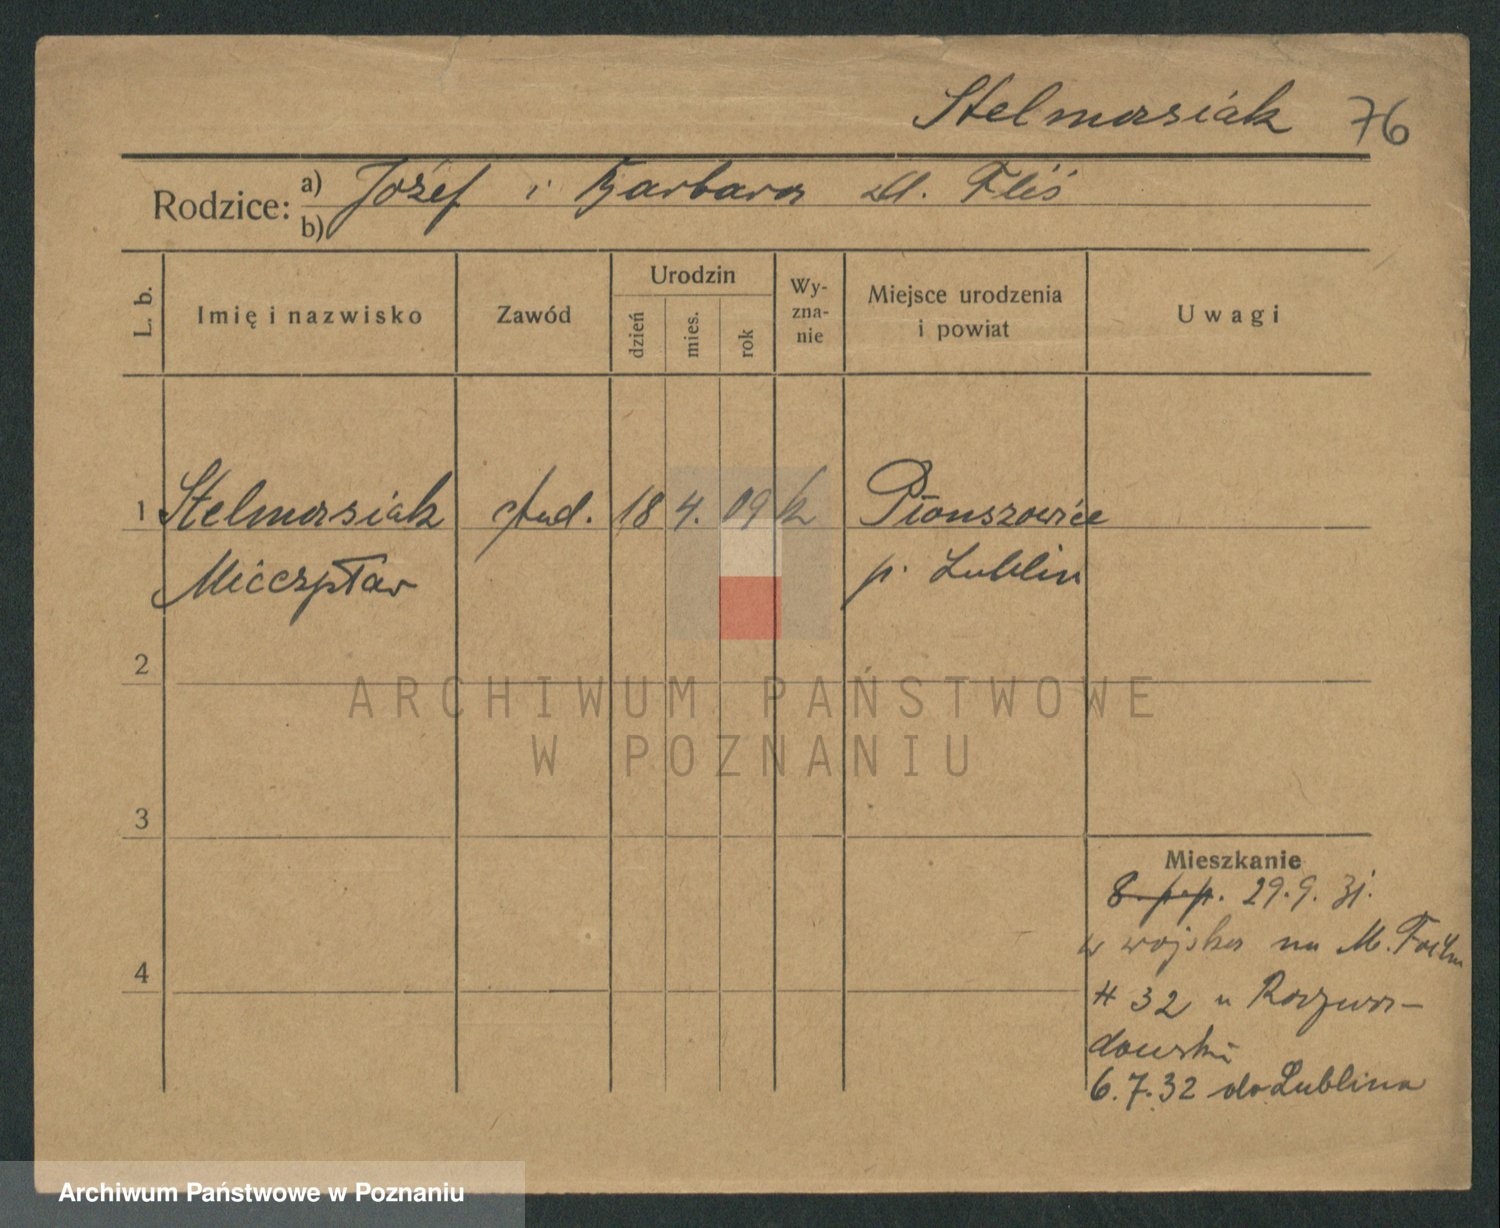 Stelmasiak 76
Rodzice: a) Józef i Barbara zd. Fliś
b)
L. b.
Imię i nazwisko
Zawód
Urodzin
dzień
mies.
rok
Wy-
zna-
nie
Miejsce urodzenia
i powiat
Uwagi
1 Stelmasiak stud. 18 4. 09 k Pionszowice
Mieczysław p. Lublin
2
ARCHIWUM PAŃSTWOWE
W POZNANIU
3
Mieszkanie
8 p.p. 29.9.31.
w wojska na M. Focha
# 32 u
6.7.32 do Lublina
4
Archiwum Państwowe w Poznaniu